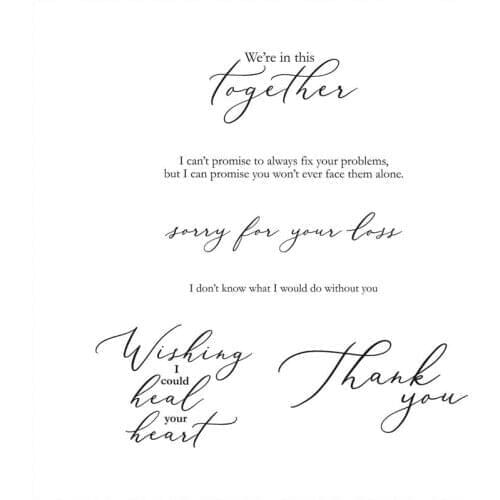 We're in this
together
I can't promise to always fix your problems,
but I can promise you won't ever face them alone.
sorry for your loss
I don't know what I would do without you
Wishing
I
could
heal
your
heart
Thank
you